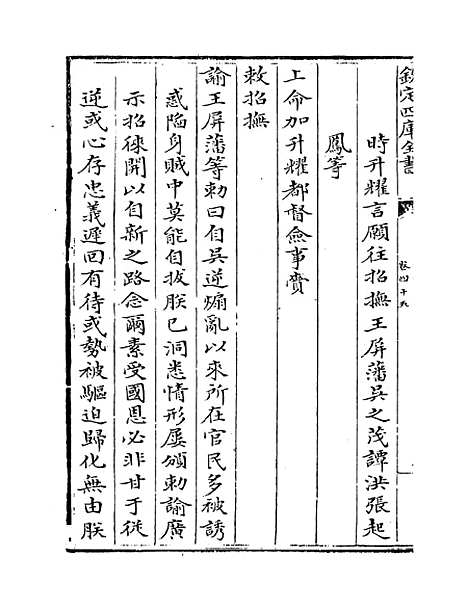 欽定四庫全書
卷四十九
時升耀言願往招撫王屏藩吳之茂譚洪張起
鳳等
上命加升耀都督僉事賫
敕招撫
諭王屏藩等勅曰自吳逆煽亂以來所在官民多被誘
惑陷身賊中莫能自拔朕已洞悉情形屢頒勅諭廣
示招徠開以自新之路念爾素受國恩必非甘于從
逆或心存忠義遲回有待或勢被驅迫歸化無由朕